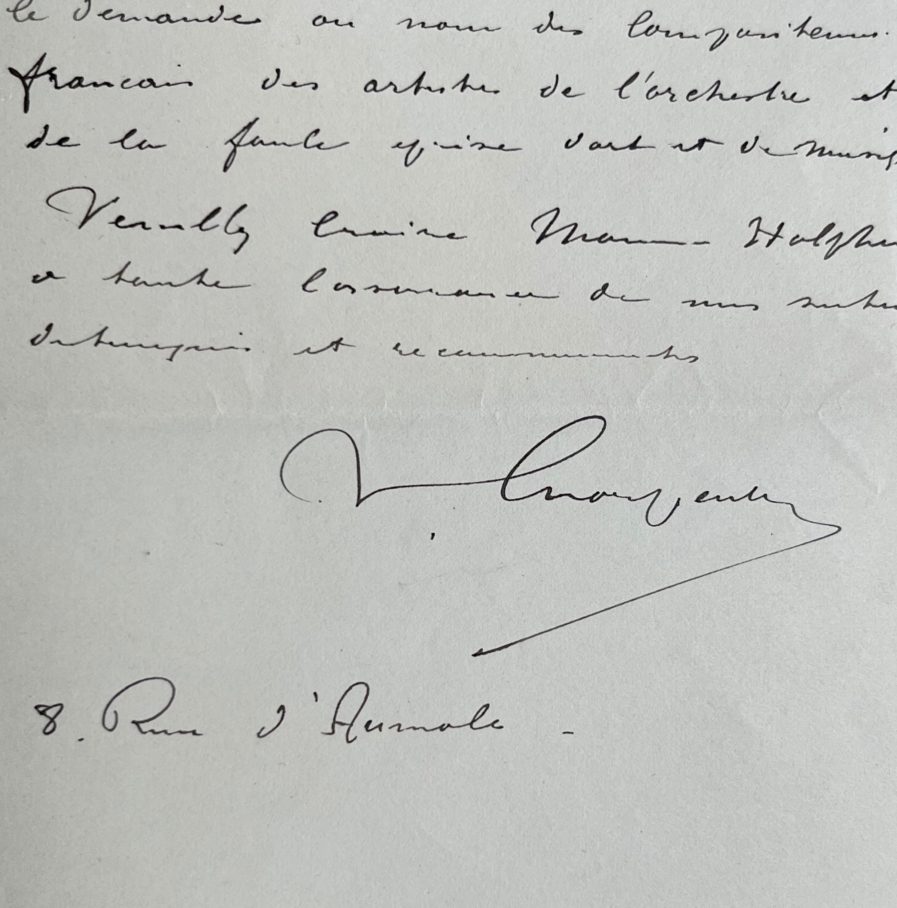 le demande au nom des Compositeurs
francais des artistes de l'orchestre et
de la foule eprise d'art et de musi
Veuillez croire Madame Halphe
a toute l'assurance de mes
distingués et reconnaissants
Charpentier
8. Rue d'Aumale -